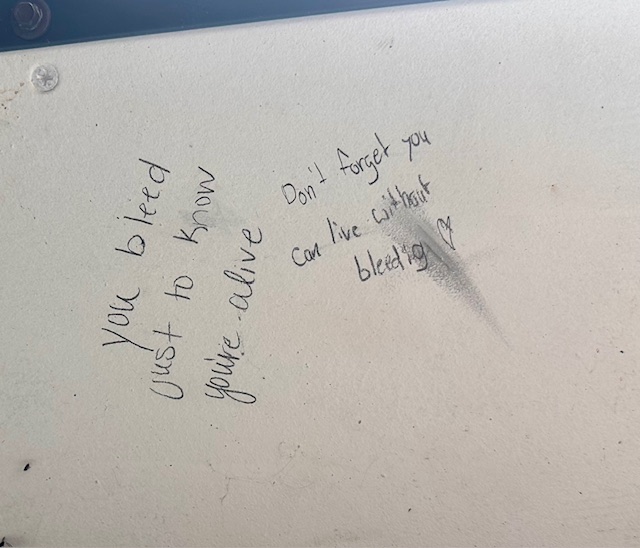 you bleed
Just to know
you're alive
Don't forget you
can live without
bleeding ♡